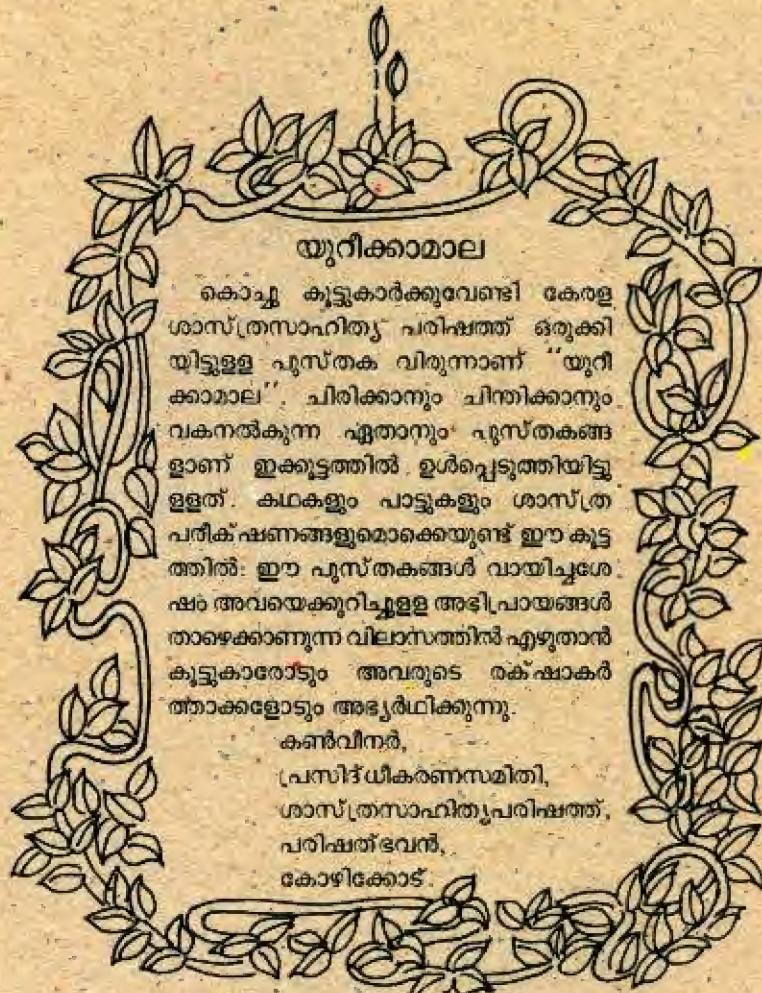 യുറീക്കാമാല
കൊച്ചു കൂട്ടുകാർക്കുവേണ്ടി കേരള
ശാസ്ത്രസാഹിത്യ പരിഷത്ത് ഒരുക്കി
യിട്ടുള്ള പുസ്തക വിരുന്നാണ് ‘‘യുറീ
ക്കാമാല’’. ചിരിക്കാനും ചിന്തിക്കാനും
വകനൽകുന്ന ഏതാനും പുസ്തകങ്ങ
ളാണ് ഇക്കൂട്ടത്തിൽ ഉൾപ്പെടുത്തിയിട്ടു
ള്ളത്. കഥകളും പാട്ടുകളും ശാസ്ത്ര
പരീക്ഷണങ്ങളുമൊക്കെയുണ്ട് ഈ കൂട്ട
ത്തിൽ: ഈ പുസ്തകങ്ങൾ വായിച്ചശേ
ഷം അവയെക്കുറിച്ചുള്ള അഭിപ്രായങ്ങൾ
താഴെക്കാണുന്ന വിലാസത്തിൽ എഴുതാൻ
കൂട്ടുകാരോടും അവരുടെ രക്ഷാകർ
ത്താക്കളോടും അഭ്യർഥിക്കുന്നു.
കൺവീനർ,
പ്രസിദ്ധീകരണസമിതി,
ശാസ്ത്രസാഹിത്യപരിഷത്ത്,
പരിഷത്ഭവൻ,
കോഴിക്കോട്.